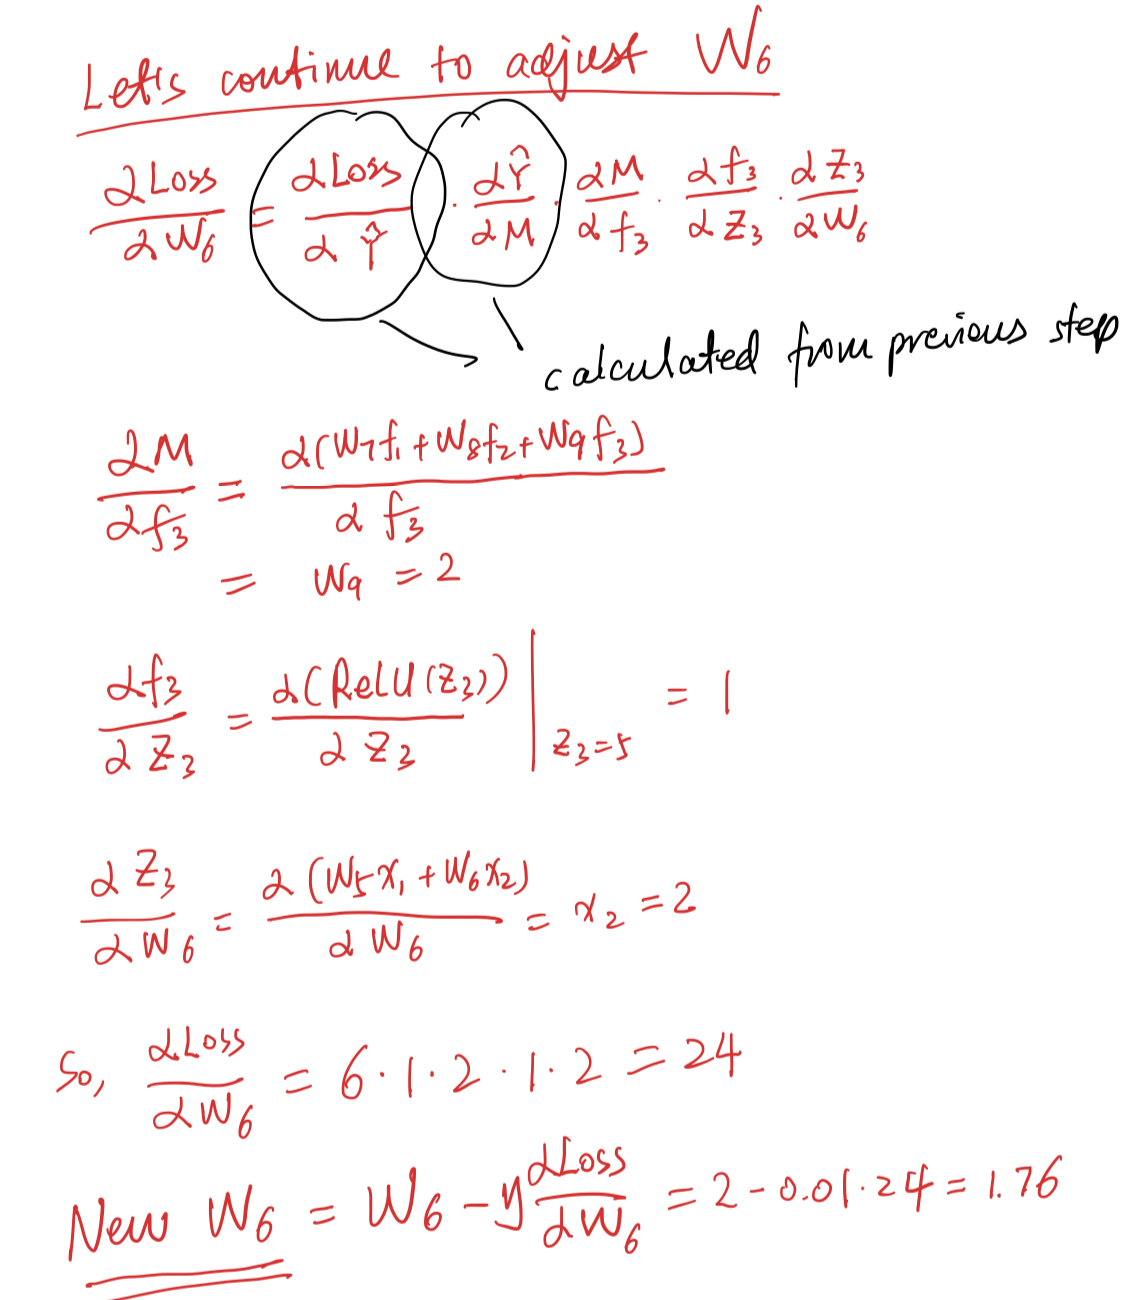 Let's continue to adjust W₆
∂Loss/∂W₆ = ∂Loss/∂Ŷ · ∂Ŷ/∂M · ∂M/∂f₃ · ∂f₃/∂Z₃ · ∂Z₃/∂W₆
calculated from previous step
∂M/∂f₃ = ∂(W₇f₁+W₈f₂+W₉f₃)/∂f₃
= W₉ = 2
∂f₃/∂Z₃ = ∂(ReLU(Z₃))/∂Z₃ |Z₃=5 = 1
∂Z₃/∂W₆ = ∂(W₅x₁+W₆x₂)/∂W₆ = x₂ = 2
So, ∂Loss/∂W₆ = 6·1·2·1·2 = 24
New W₆ = W₆ - y ∂Loss/∂W₆ = 2 - 0.01·24 = 1.76